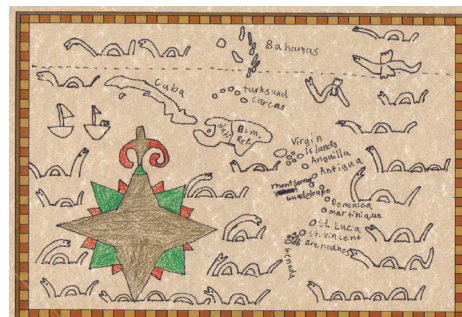 Bahamas
Cuba
turks and
carcas
Haiti
Dom.
Rep.
Virgin
islands
Anguilla
Antigua
montserrat
Guadeloupe
Dominica
martinique
St. Lucia
St. Vincent
Grenadines
Grenada